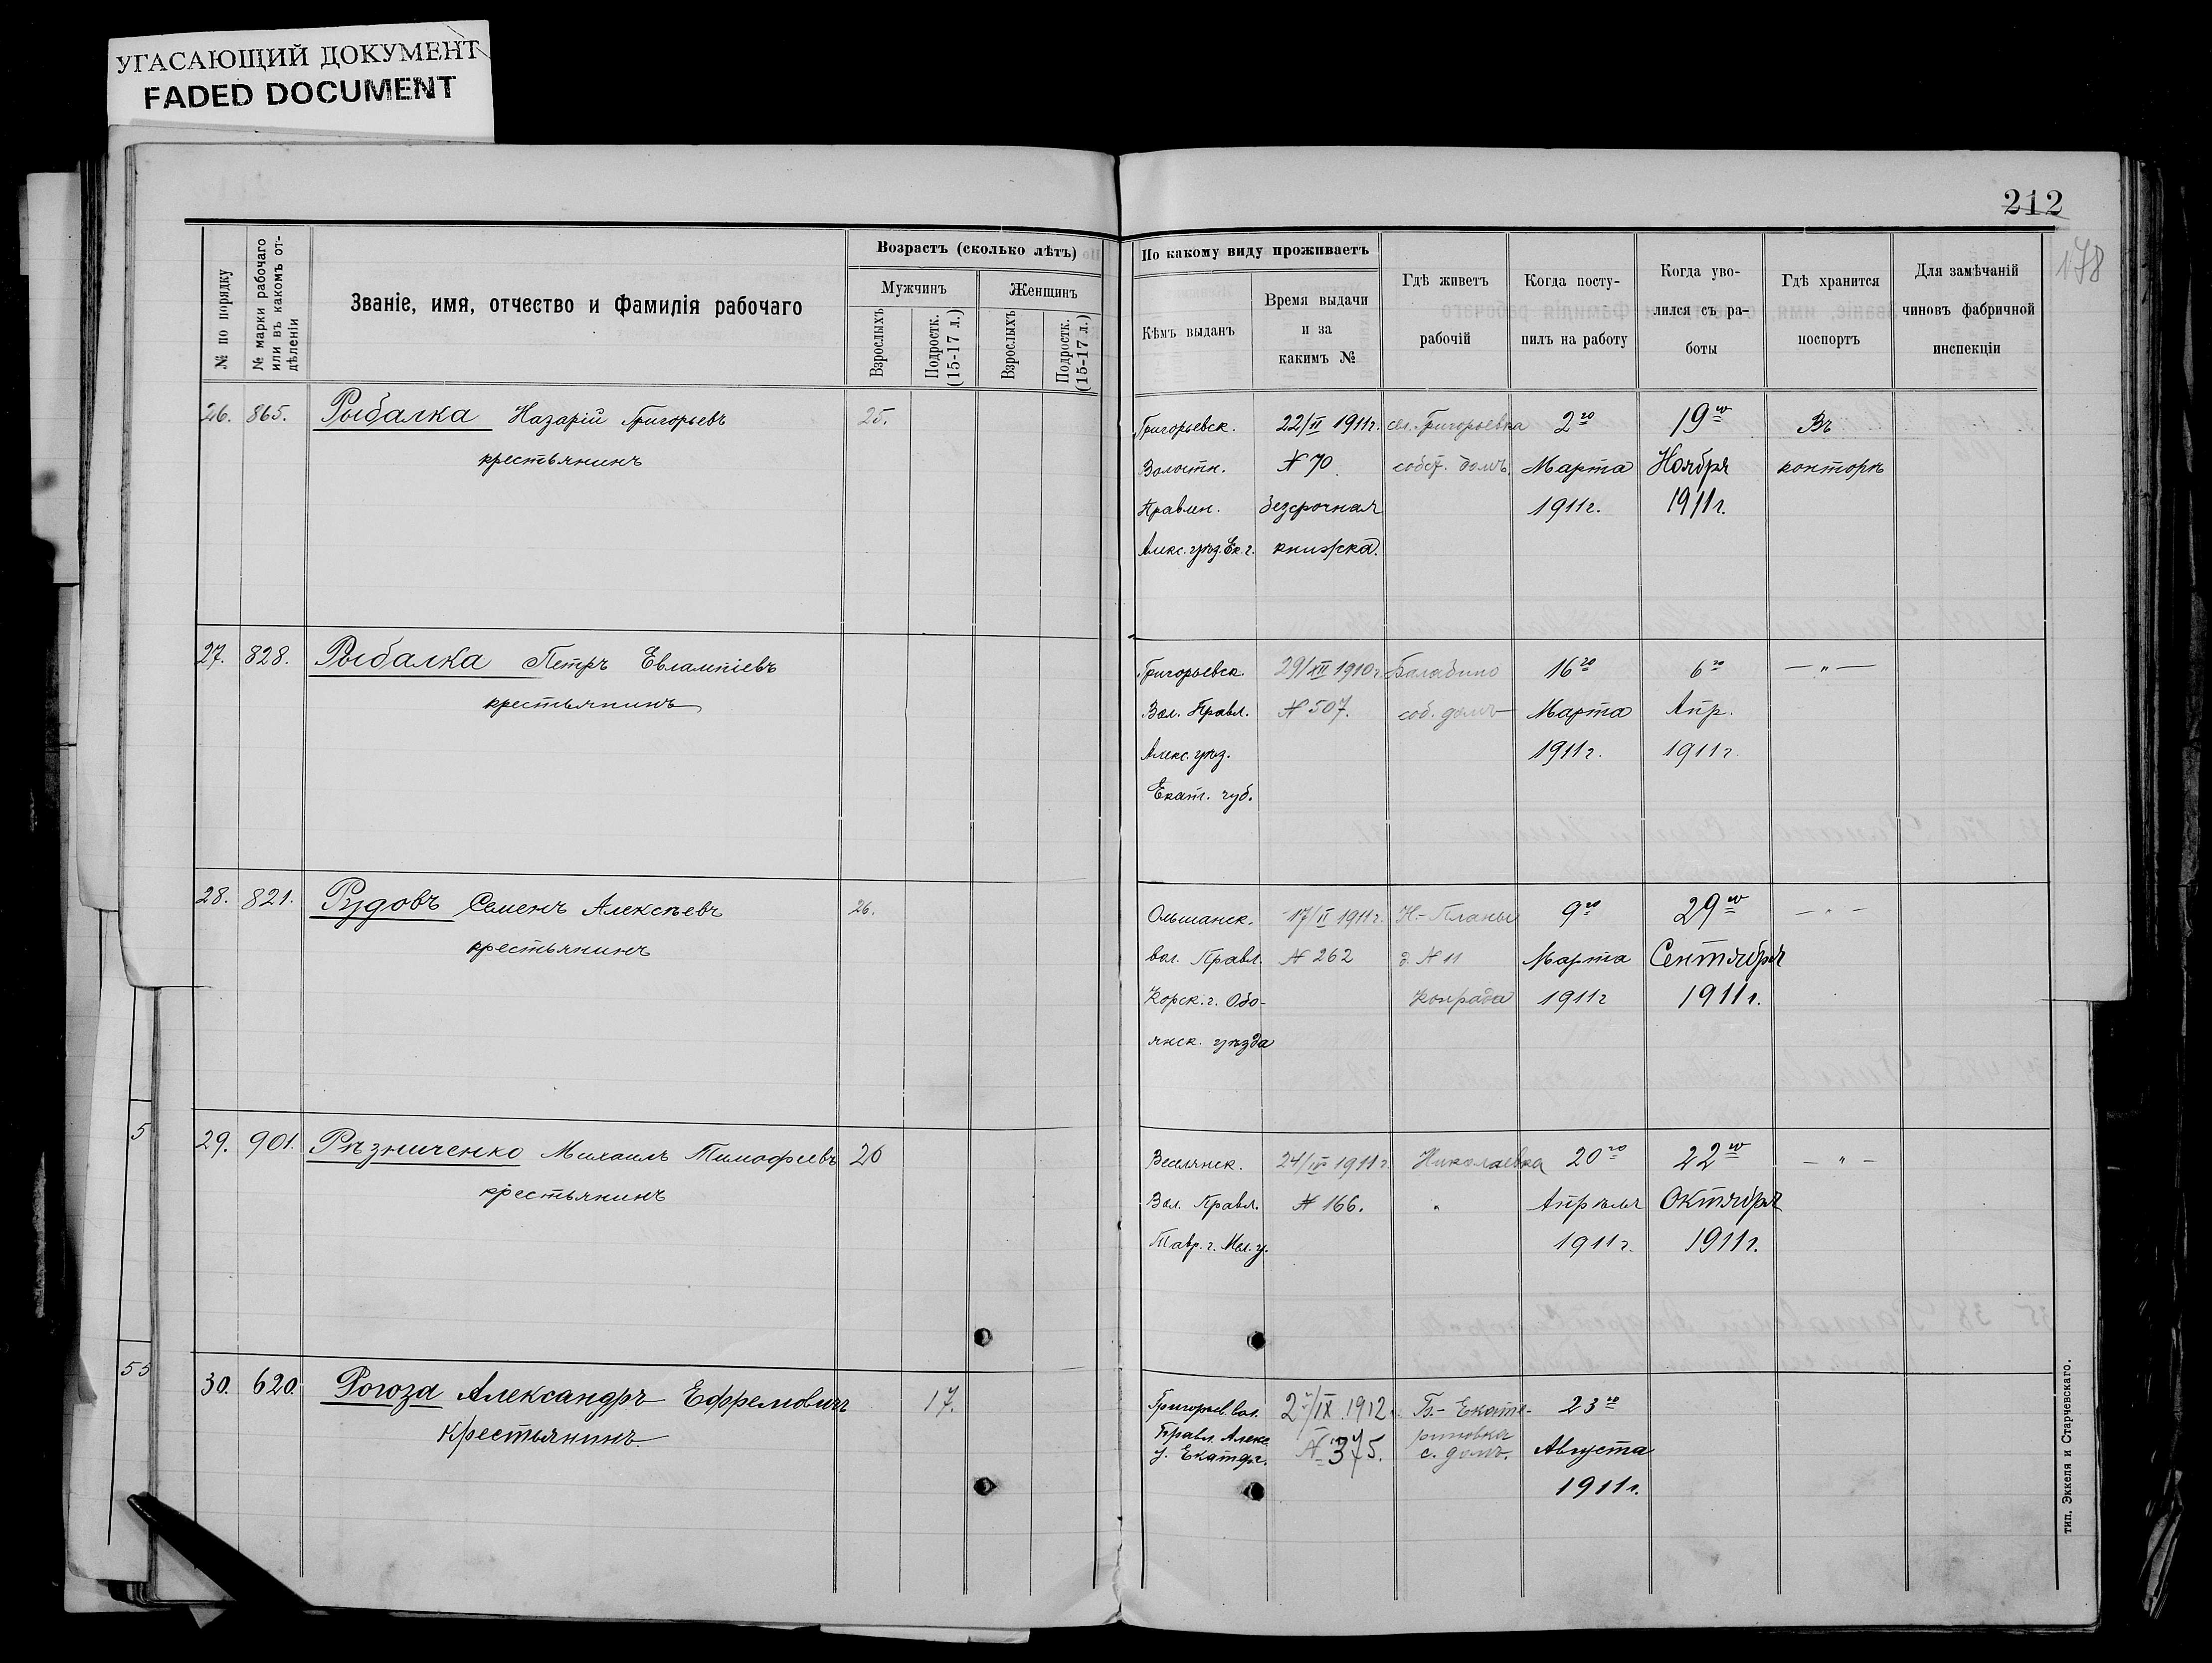 УГАСАЮЩИЙ ДОКУМЕНТ
FADED DOCUMENT
212
178
№ по порядку
№ марки рабочаго или въ какомъ отдѣленіи
Званіе, имя, отчество и фамилія рабочаго
Возрастъ (сколько лѣтъ)
Мужчинъ
Женщинъ
Взрослыхъ
Подростк. (15-17 л.)
Взрослыхъ
Подростк. (15-17 л.)
По какому виду проживаетъ
Кѣмъ выданъ
Время выдачи
и за
какимъ №
Гдѣ живетъ
рабочій
Когда посту-
пилъ на работу
Когда уво-
лился съ ра-
боты
Гдѣ хранится
поспортъ
Для замѣчаній
чиновъ фабричной
инспекціи
26. 865. Рыбалка Назарій Григорьевъ 25.
крестьянинъ
Григорьевск. 22/II 1911г. сел. Григорьевка 2го 19го Въ
Волостн. № 70 собст. домъ. Марта Ноября конторѣ
Правлен. безсрочная 1911г. 1911г.
Алекс. уѣзд. Ек. г. книжка.
27. 828. Рыбалка Петръ Евлампіевъ
крестьянинъ
Григорьевск. 29/XII 1910г. Балабино 16го 6го — " —
Вол. Правл. № 507. соб. домъ Марта Апр.
Алекс. уѣз. 1911г. 1911г.
Екат. губ.
28. 821. Рудовъ Семенъ Алексѣевъ 26.
крестьянинъ
Ольшанск. 17/II 1911г. Н.-Планы 9го 29го — " —
вол. Правл. № 262 д. № 11 Марта Сентября
Корск. г. Обо- Конрада 1911г 1911г.
янск. уѣзда
29. 901. Рѣзниченко Михаилъ Тимофѣевъ 26
крестьянинъ
Веселянск. 24/IV 1911г. Николаевка 20го 22го — " —
Вол. Правл. № 166. " Апрѣля Октября
Тавр. г. Мел. у. 1911г. 1911г.
30. 620. Рогоза Александръ Ефремовичъ 17.
Крестьянинъ
Григорьев. вол. 2/IX 1912 Б.-Екате- 23го
Правл. Алекс риновка
у. Екатер г. № 375. с. домъ. Августа
1911г.
5
55
тип. Эккеля и Старчевскаго.